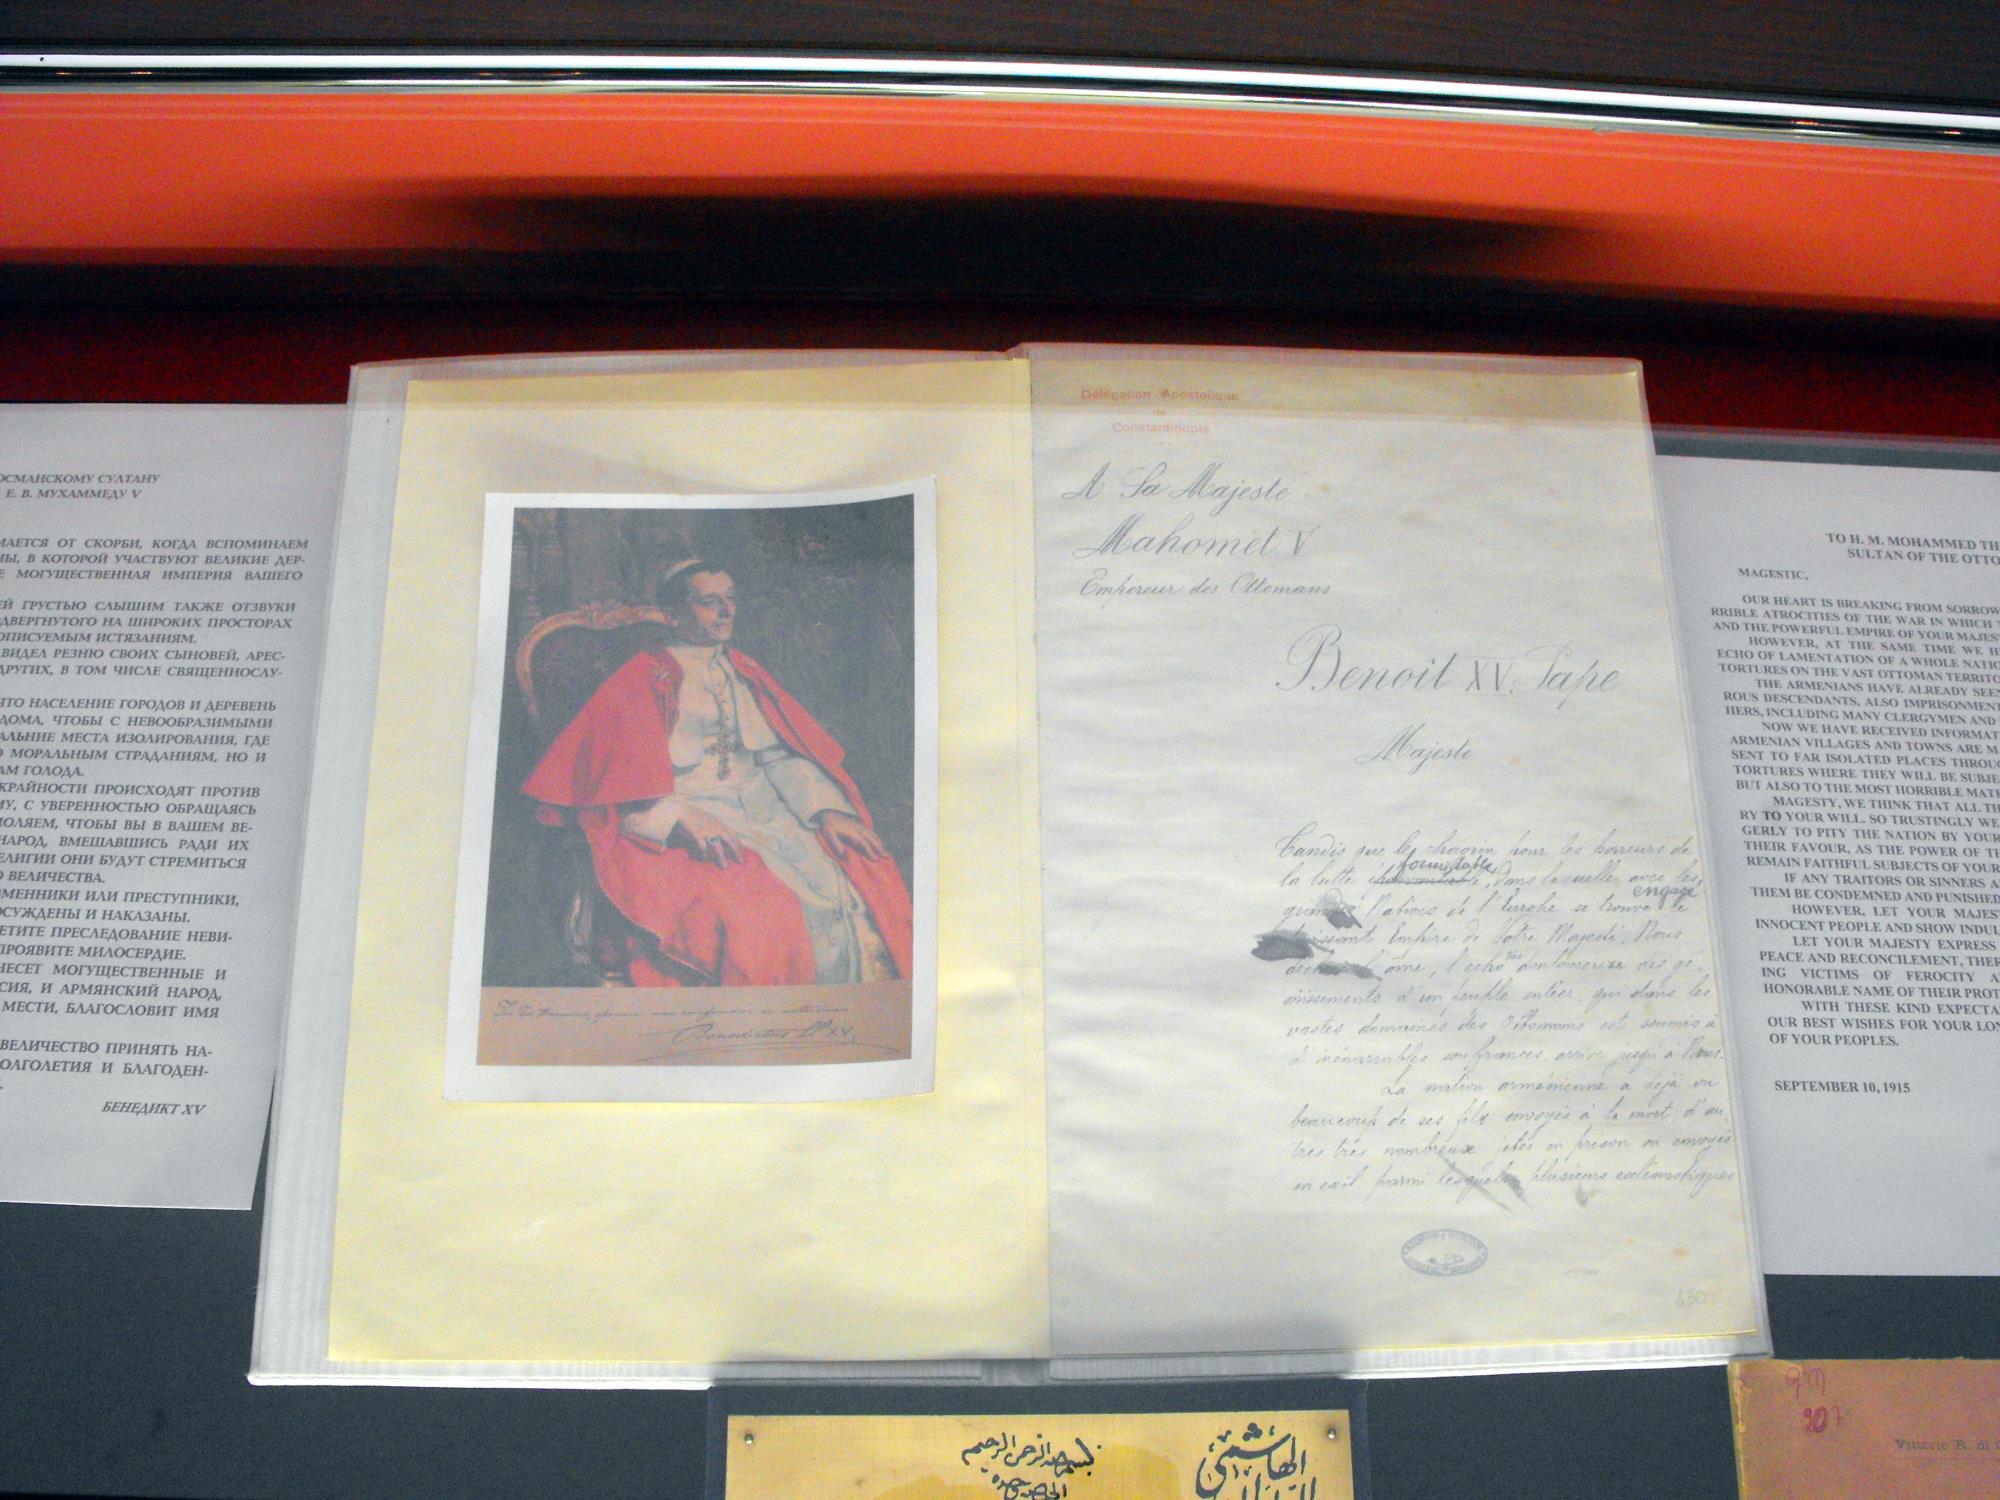 ОСМАНСКОМУ СУЛТАНУ
Е. В. МУХАММЕДУ V
МАЕТСЯ ОТ СКОРБИ, КОГДА ВСПОМИНАЕМ
НЫ, В КОТОРОЙ УЧАСТВУЮТ ВЕЛИКИЕ ДЕР-
Е МОГУЩЕСТВЕННАЯ ИМПЕРИЯ ВАШЕГО
ЕЙ ГРУСТЬЮ СЛЫШИМ ТАКЖЕ ОТЗВУКИ
ОДВЕРГНУТОГО НА ШИРОКИХ ПРОСТОРАХ
ОПИСУЕМЫМ ИСТЯЗАНИЯМ.
ВИДЕЛ РЕЗНЮ СВОИХ СЫНОВЕЙ, АРЕС-
ДРУГИХ, В ТОМ ЧИСЛЕ СВЯЩЕННОСЛУ-
ЧТО НАСЕЛЕНИЕ ГОРОДОВ И ДЕРЕВЕНЬ
ДОМА, ЧТОБЫ С НЕВООБРАЗИМЫМИ
АЛЬНИЕ МЕСТА ИЗОЛИРОВАНИЯ, ГДЕ
О МОРАЛЬНЫМ СТРАДАНИЯМ, НО И
АМ ГОЛОДА.
КРАЙНОСТИ ПРОИСХОДЯТ ПРОТИВ
МУ, С УВЕРЕННОСТЬЮ ОБРАЩАЯСЬ
МОЛЯЕМ, ЧТОБЫ ВЫ В ВАШЕМ ВЕ-
НАРОД, ВМЕШАВШИСЬ РАДИ ИХ
ЕЛИГИИ ОНИ БУДУТ СТРЕМИТЬСЯ
О ВЕЛИЧЕСТВА.
ЗМЕННИКИ ИЛИ ПРЕСТУПНИКИ,
ОСУЖДЕНЫ И НАКАЗАНЫ.
ЕТИТЕ ПРЕСЛЕДОВАНИЕ НЕВИ-
ПРОЯВИТЕ МИЛОСЕРДИЕ.
НЕСЕТ МОГУЩЕСТВЕННЫЕ И
СИЯ, И АРМЯНСКИЙ НАРОД,
МЕСТИ, БЛАГОСЛОВИТ ИМЯ
ВЕЛИЧЕСТВО ПРИНЯТЬ НА-
ОЛГОЛЕТИЯ И БЛАГОДЕН-
БЕНЕДИКТ XV
Benedictus PP XV
Délégation Apostolique
de
Constantinople
A Sa Majesté
Mahomet V
Empereur des Ottomans
Benoit XV, Pape
Majesté
Tandis que le chagrin pour les horreurs de
la lutte formidable, dans laquelle avec les
engagé
Nations de l'Europe se trouve le
puissant Empire de Votre Majesté, Nous
l'âme, l'echo très douloureux des gé-
missements d'un peuple entier, qui dans les
vastes domaines des Ottomans est soumis à
d'inénarrables souffrances, arrive jusqu'à Nous.
La nation arménienne a déjà vu
beaucoup de ses fils envoyés à la mort, d'au-
tres très nombreux jetés en prison ou envoyés
en exil, parmi lesquels plusieurs ecclésiastiques
430
TO H. M. MOHAMMED TH
SULTAN OF THE OTTO
MAGESTIC,
OUR HEART IS BREAKING FROM SORROW
RRIBLE ATROCITIES OF THE WAR IN WHICH T
AND THE POWERFUL EMPIRE OF YOUR MAJES
HOWEVER, AT THE SAME TIME WE H
ECHO OF LAMENTATION OF A WHOLE NATIO
TORTURES ON THE VAST OTTOMAN TERRITO
THE ARMENIANS HAVE ALREADY SEEN
ROUS DESCENDANTS, ALSO IMPRISONMENT
HERS, INCLUDING MANY CLERGYMEN AND
NOW WE HAVE RECEIVED INFORMAT
ARMENIAN VILLAGES AND TOWNS ARE M
SENT TO FAR ISOLATED PLACES THROUG
TORTURES WHERE THEY WILL BE SUBJE
BUT ALSO TO THE MOST HORRIBLE MATE
MAGESTY, WE THINK THAT ALL TH
RY TO YOUR WILL. SO TRUSTINGLY WE
GERLY TO PITY THE NATION BY YOUR
THEIR FAVOUR, AS THE POWER OF TH
REMAIN FAITHFUL SUBJECTS OF YOUR
IF ANY TRAITORS OR SINNERS A
THEM BE CONDEMNED AND PUNISHED
HOWEVER, LET YOUR MAJEST
INNOCENT PEOPLE AND SHOW INDUL
LET YOUR MAJESTY EXPRESS
PEACE AND RECONCILEMENT, THER
ING VICTIMS OF FEROCITY A
HONORABLE NAME OF THEIR PROT
WITH THESE KIND EXPECTA
OUR BEST WISHES FOR YOUR LON
OF YOUR PEOPLES.
SEPTEMBER 10, 1915
بسم الله الرحمن الرحيم
الهاشمي
207
Vittorio R. di